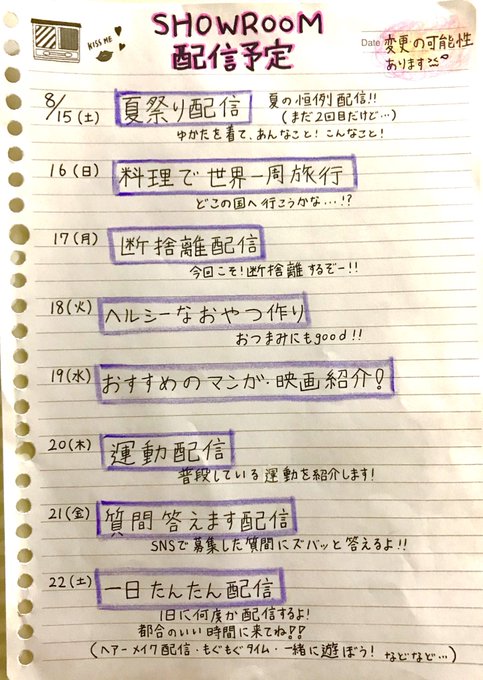 SHOWROOM
配信予定
KISS ME
Date
変更の可能性
あります
8/15(土) 夏祭り配信 夏の恒例配信!!
(まだ2回目だけど…)
ゆかたを着て、あんなこと!こんなこと!
16(日) 料理で世界一周旅行
どこの国へ行こうかな…!?
17(月) 断捨離配信
今回こそ!断捨離するぞー!!
18(火) ヘルシーなおやつ作り
おつまみにもgood!!
19(水) おすすめのマンガ・映画紹介!
20(木) 運動配信
普段している運動を紹介します!
21(金) 質問答えます配信
SNSで募集した質問にズバッと答えるよ!!
22(土) 一日たんたん配信
1日に何度か配信するよ!
都合のいい時間に来てね!!
(ヘアーメイク配信・もぐもぐタイム・一緒に遊ぼう! などなど…)